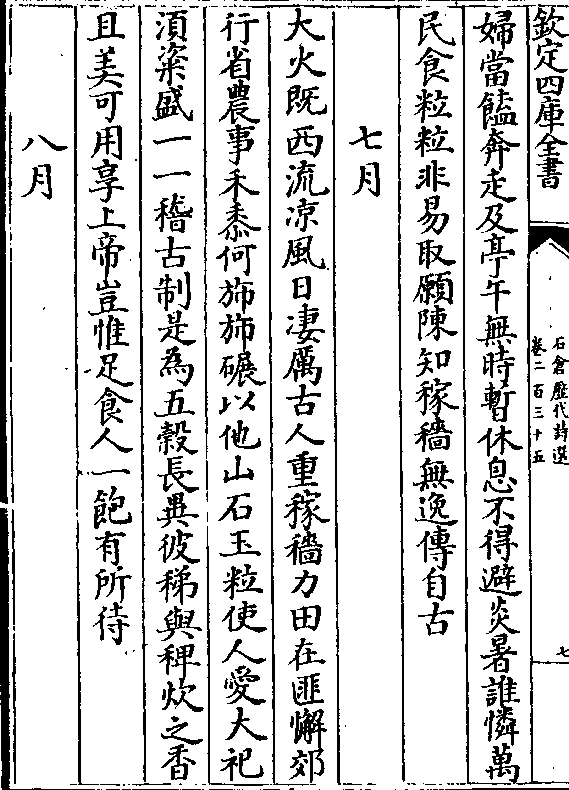 欽定四庫全書
石倉歷代詩選
卷二百三十五
七
婦當饁奔走及亭午無時暫休息不得避炎暑誰憐萬
民食粒粒非易取願陳知稼穡無逸傳自古
七月
大火既西流凉風日凄厲古人重稼穡力田在匪懈郊
行省農事禾黍何旆旆碾以他山石玉粒使人愛大祀
湏粢盛一一稽古制是為五榖長異彼稊與稗炊之香
且美可用享上帝豈惟足食人一飽有所待
八月